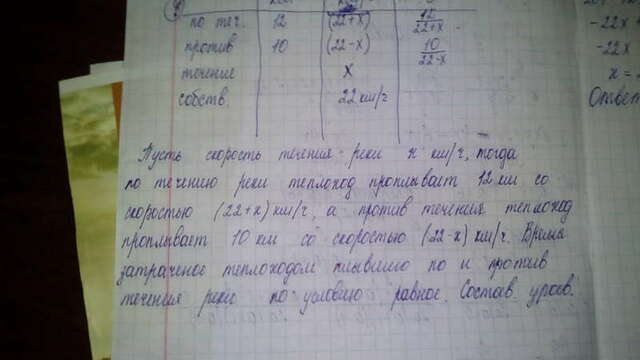 4
по теч. 12 (22+x) 12/22+x
против 10 (22-x) 10/22-x
течение x
собств. 22 км/ч
Пусть скорость течения реки x км/ч, тогда
по течению реки теплоход проплывает 12 км со
скоростью (22+x) км/ч, а против течения теплоход
проплывает 10 км со скоростью (22-x) км/ч. Время
затраченое теплоходом плывшего по и против
течения реки по условию равное. Состав. урав.
-22x
-22x
x =
Ответ